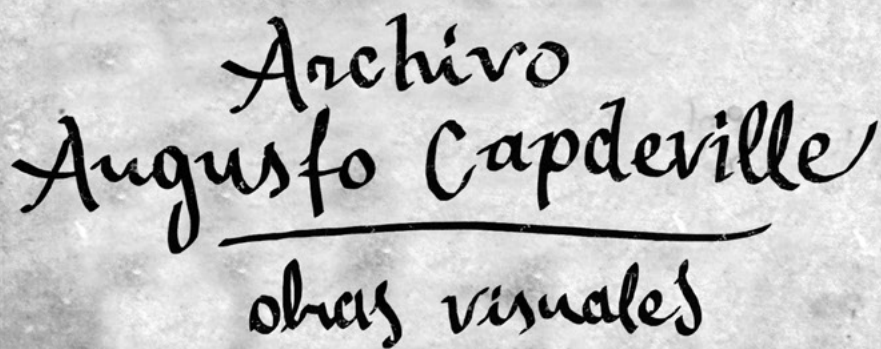 Archivo
Augusto Capdeville
obras visuales